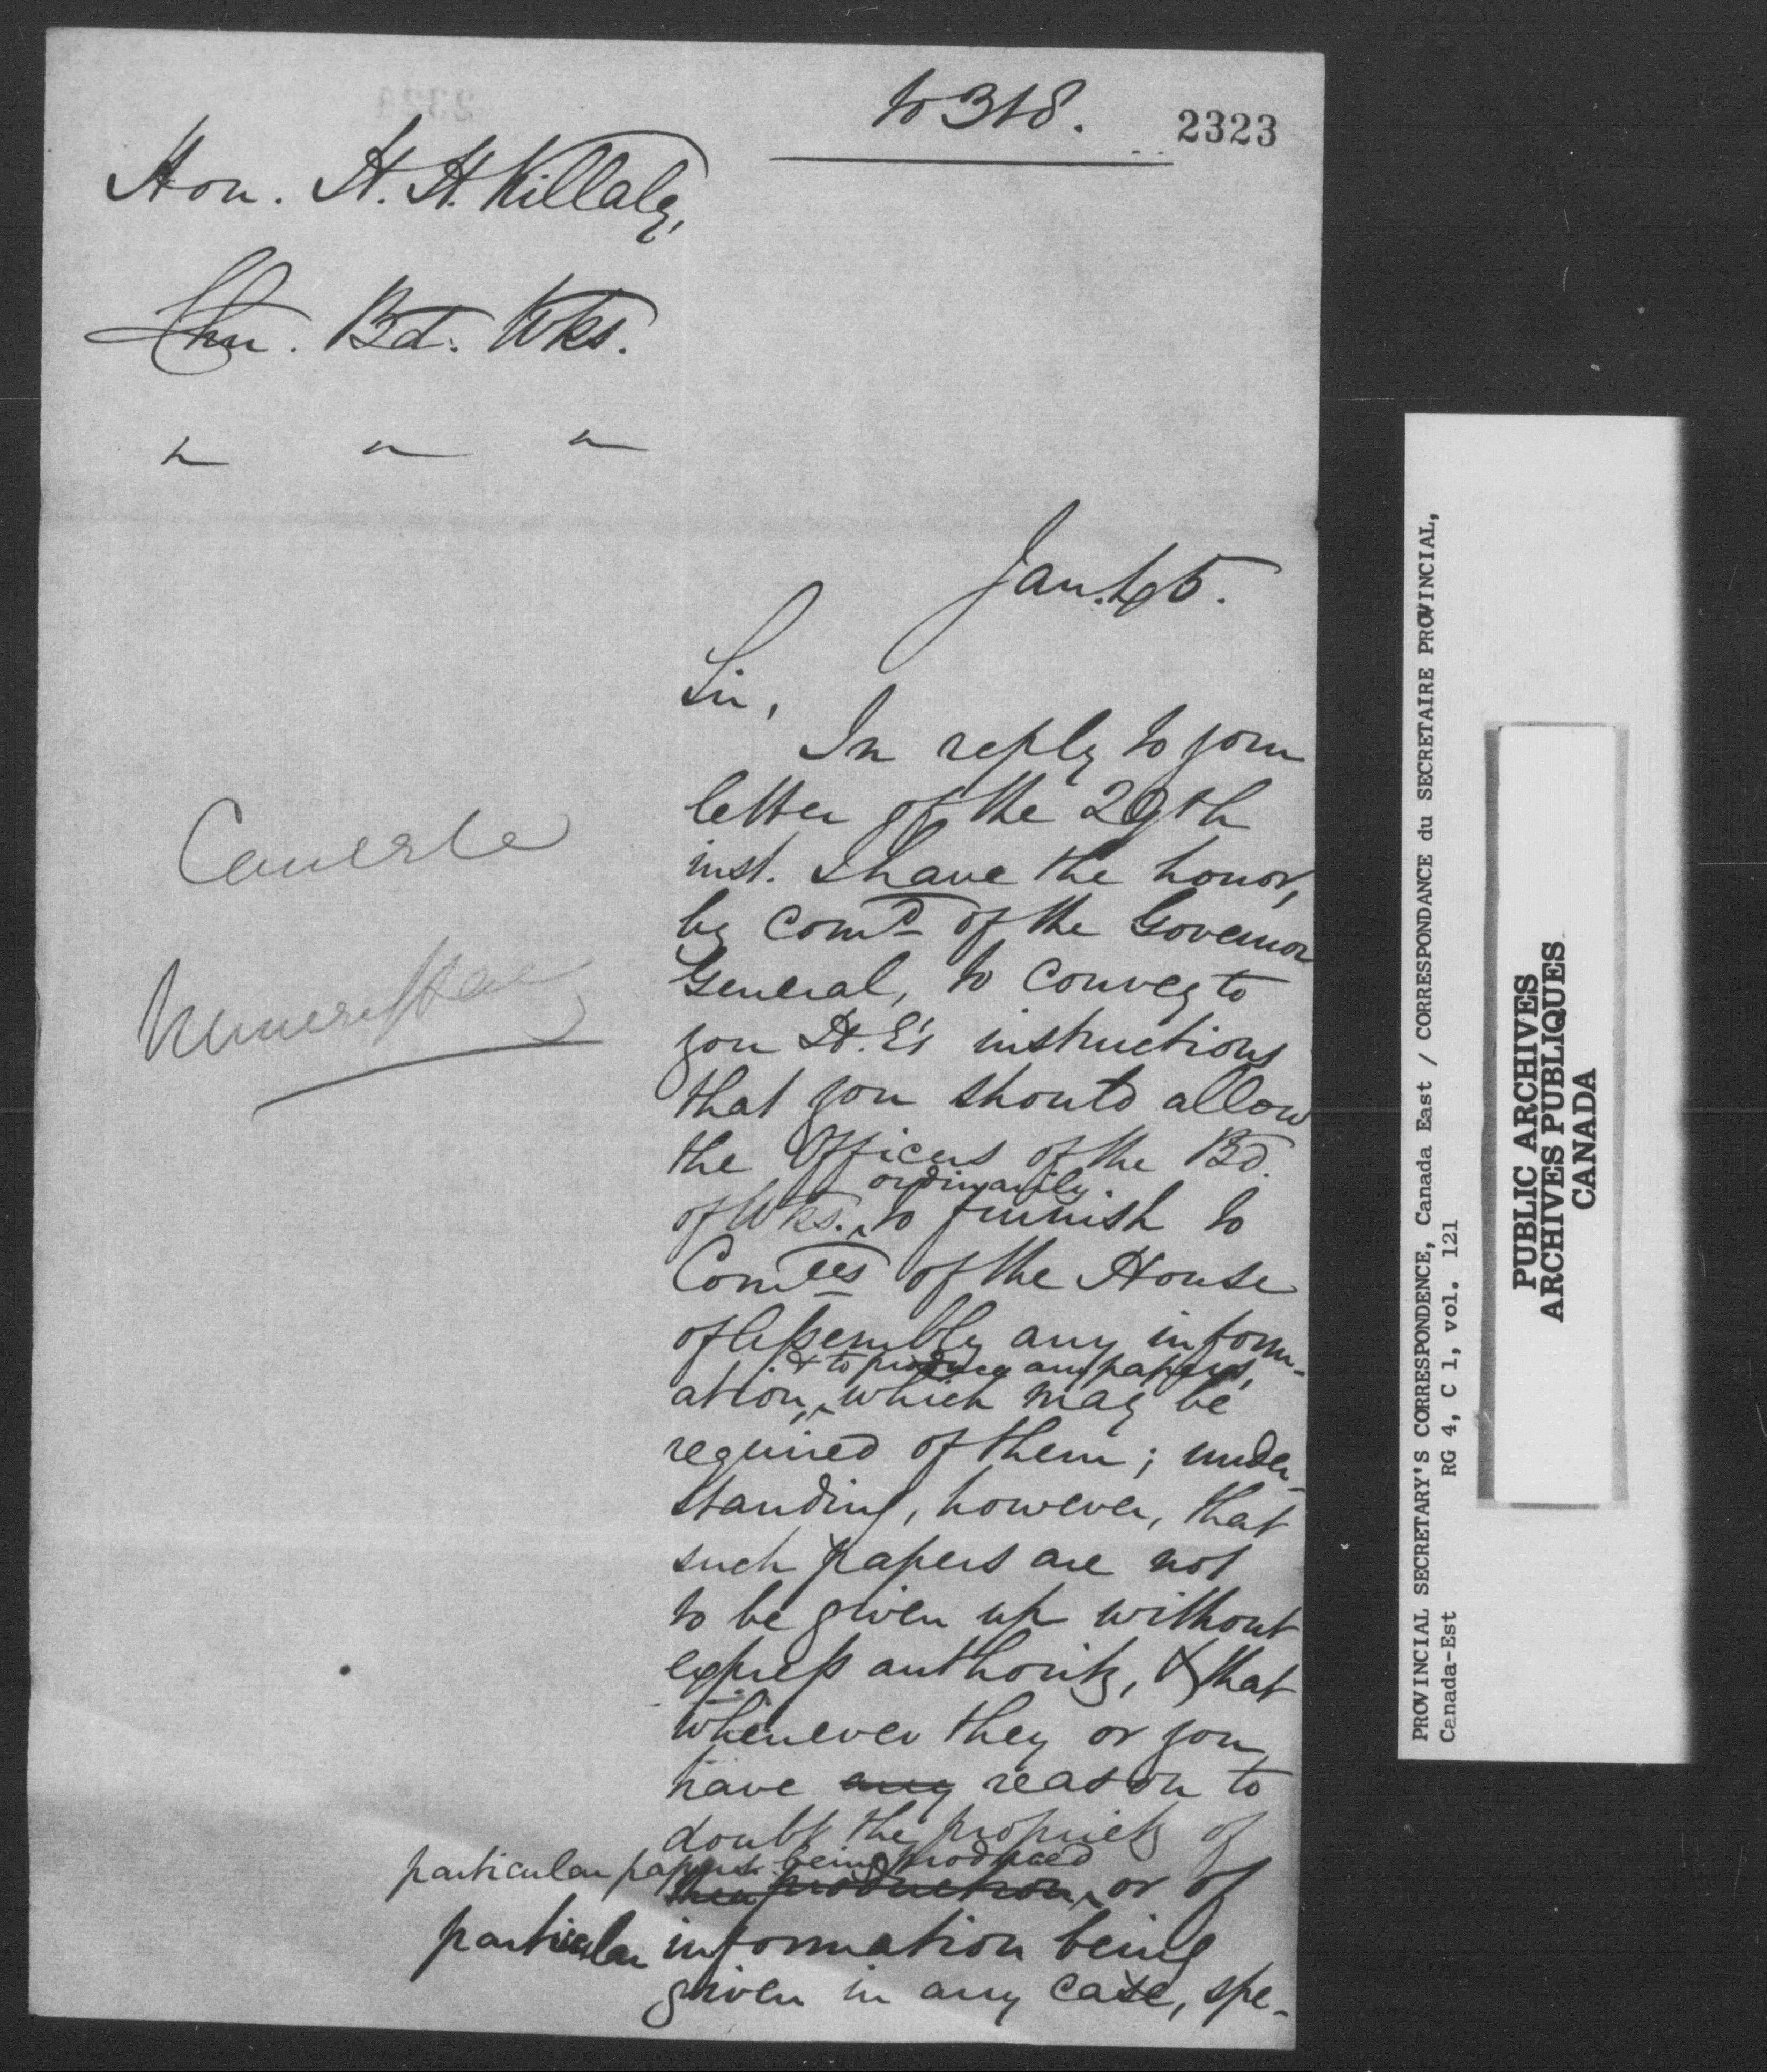 to 318.
2323
Hon. H. H. Killaly,
Chn. Bd. Wks.
" " "
Jan. 45.
Sir,
In reply to your
letter of the 29th
inst. I have the honor,
by Comd of the Governor
General, to convey to
you H. E's instructions
that you should allow
the Officers of the Bd.
ordinarily
of Wks. ^ to furnish to
Comtees of the House
of Assembly any inform-
& to produce any papers,
ation, ^ which may be
required of them; under-
standing, however, that
such papers are not
to be given up without
express authority, & that
whenever they or you
have any reason to
doubt the propriety of
particular papers being produced
their production ^ or of
particular information being
given in any case, spe-
PROVINCIAL SECRETARY'S CORRESPONDENCE, Canada East / CORRESPONDANCE du SECRETAIRE PROVINCIAL,
Canada-Est RG 4, C 1, vol. 121
PUBLIC ARCHIVES
ARCHIVES PUBLIQUES
CANADA